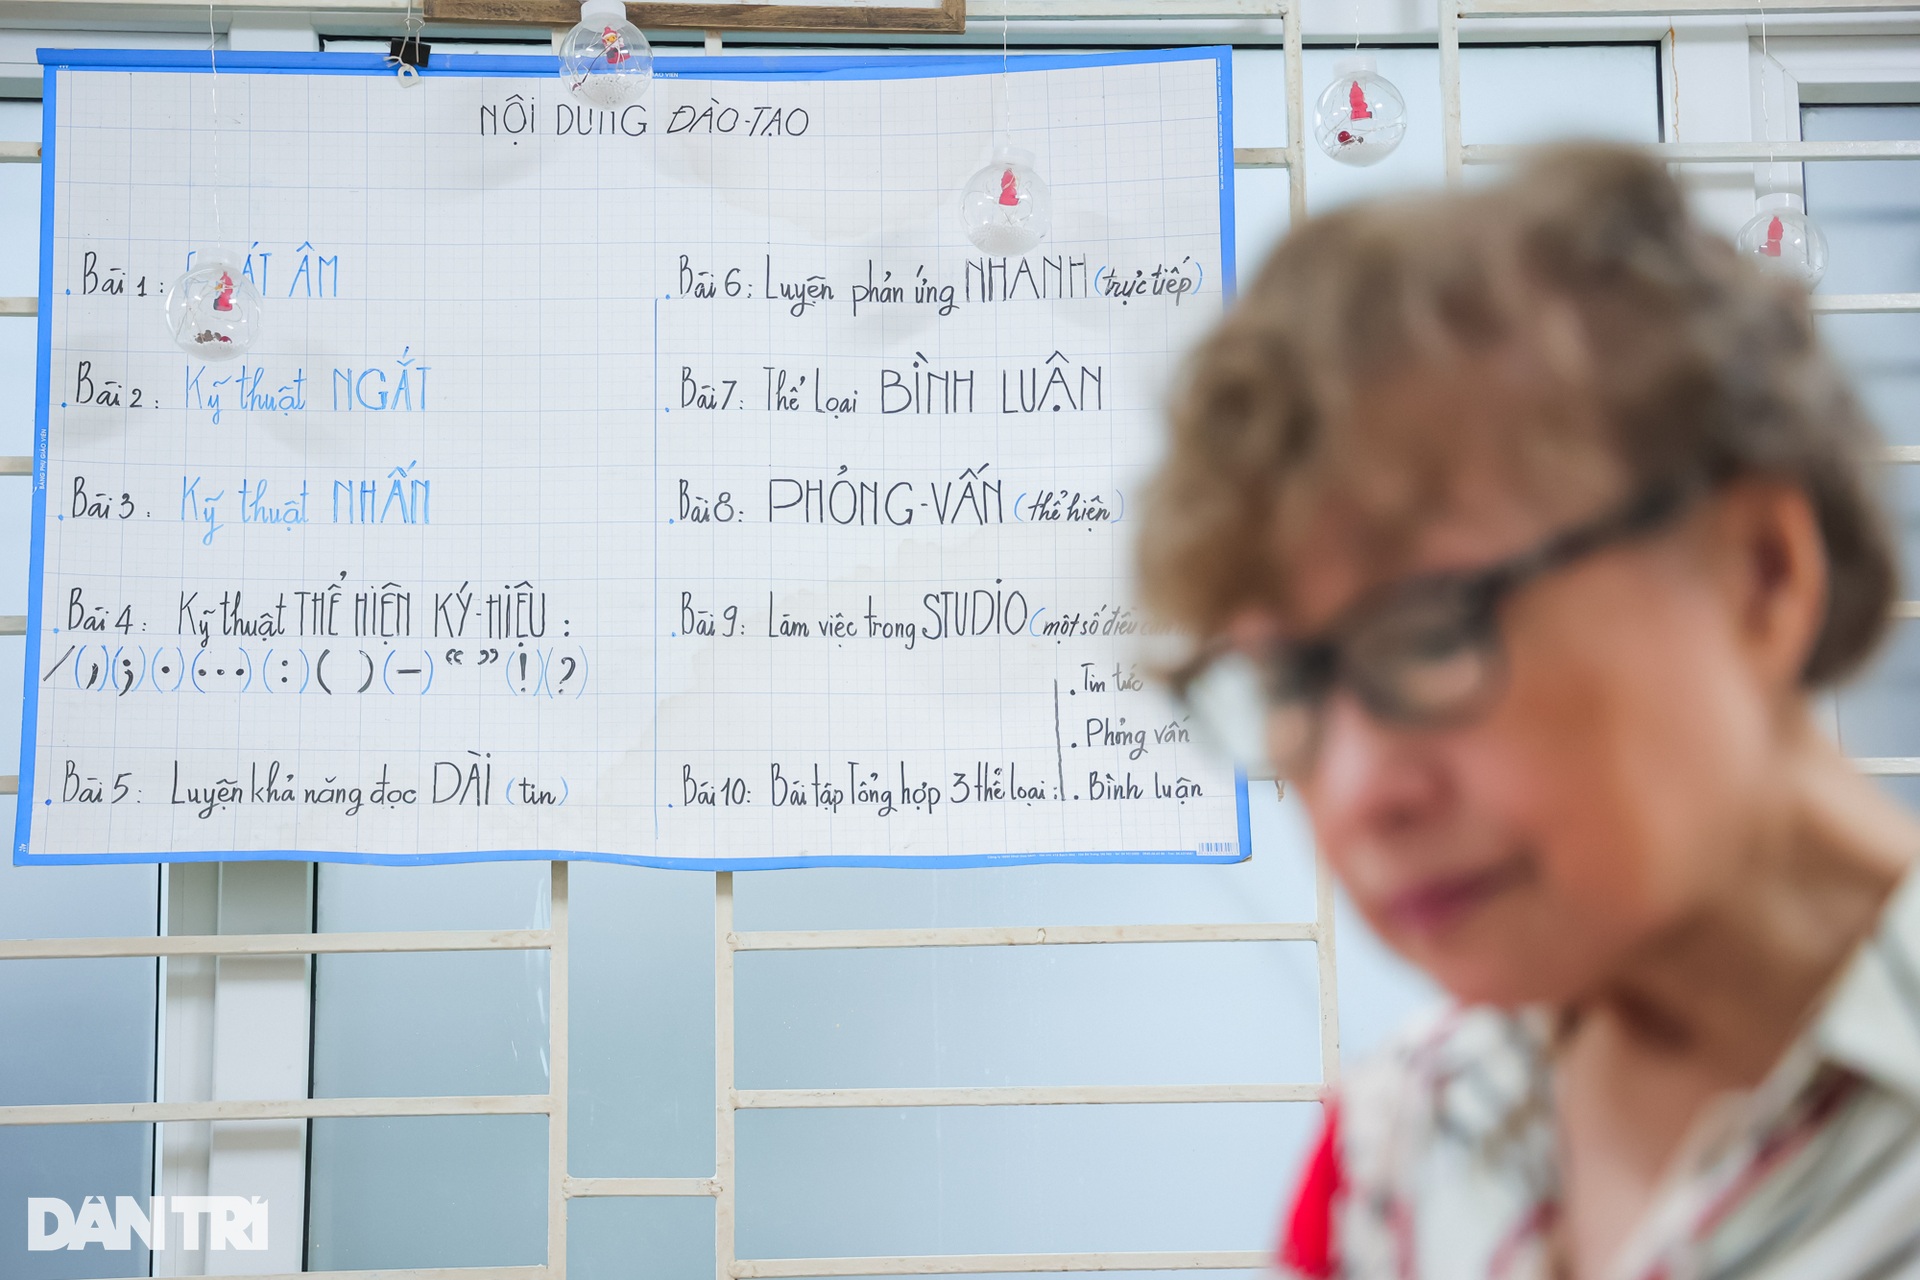 NỘI DUNG ĐÀO-TẠO
Bài 1: ÂM
Bài 2: Kỹ thuật NGẮT
Bài 3: Kỹ thuật NHẤN
Bài 4: Kỹ thuật THỂ HIỆN KÝ-HIỆU:
/ (,) (;) (.) (...) (:) ( ) (–) “ ” (!) (?)
Bài 5: Luyện khả năng đọc DÀI (tin)
Bài 6: Luyện phản ứng NHANH (trực tiếp)
Bài 7: Thể loại BÌNH LUẬN
Bài 8: PHỎNG-VẤN (thể hiện)
Bài 9: Làm việc trong STUDIO (một số điều
Bài 10: Bài tập Tổng hợp 3 thể loại:
. Tin tức
. Phỏng vấn
. Bình luận
BẢNG PHỤ GIÁO VIÊN
DÂN TRÍ